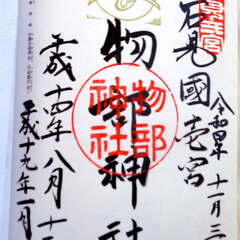 石見國壱宮
令和四年十一月三
物部神社
物部
神社
平成十四年八月十
平成十九年一月